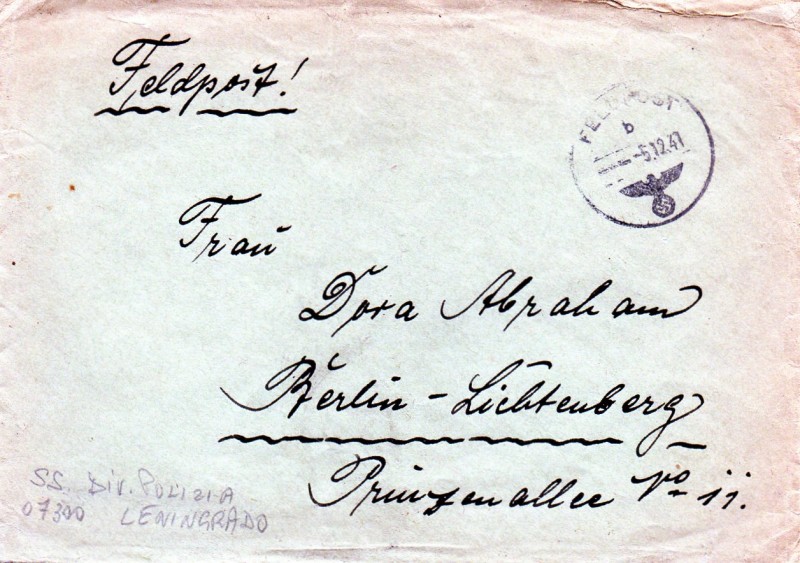 Feldpost!
FELDPOST
b
-5.12.41
Frau
Dora Abraham
Berlin - Lichtenberg
Prinzenallee No 11.
SS. DIV. POLIZIA
07300 LENINGRADO